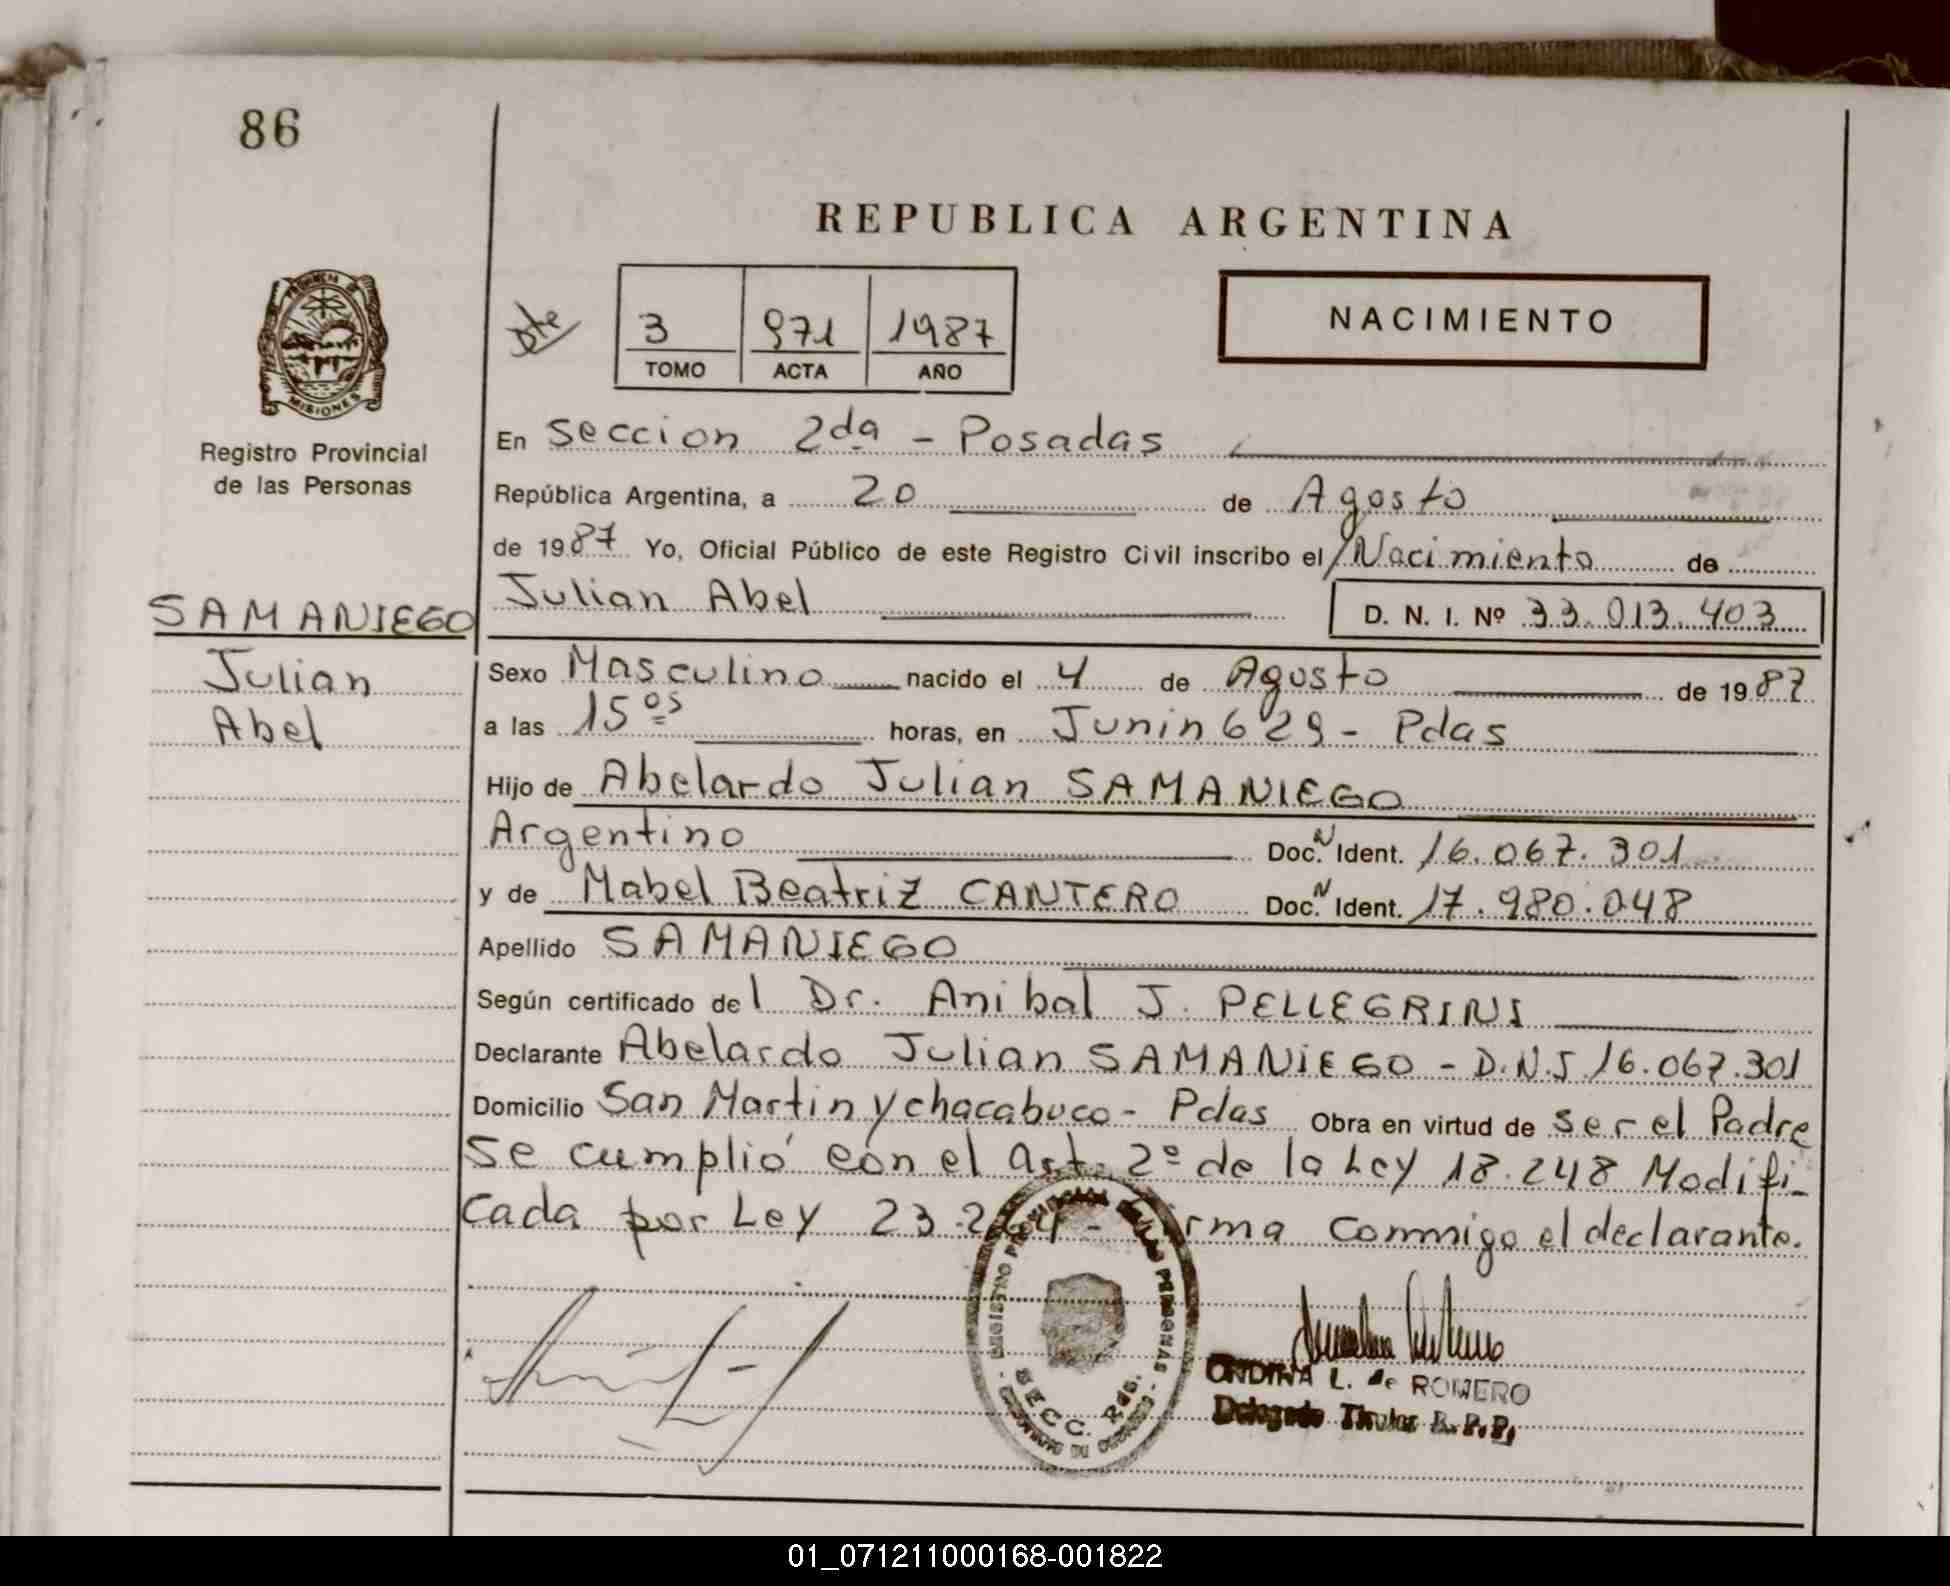 86
REPUBLICA ARGENTINA
Dte
3 971 1987
TOMO ACTA AÑO
NACIMIENTO
PROVINCIA DE
MISIONES
Registro Provincial
de las Personas
En Seccion 2da - Posadas
República Argentina, a 20 de Agosto
de 1987 Yo, Oficial Público de este Registro Civil inscribo el Nacimiento de
Julian Abel D. N. I. Nº 33.013.403
SAMANIEGO
Julian
Abel
Sexo Masculino nacido el 4 de Agosto de 1987
a las 15os horas, en Junin 629 - Pdas
Hijo de Abelardo Julian SAMANIEGO
Argentino Doc. N Ident. 16.067.301
y de Mabel Beatriz CANTERO Doc. N Ident. 17.980.048
Apellido SAMANIEGO
Según certificado del Dr. Anibal J. PELLEGRINI
Declarante Abelardo Julian SAMANIEGO - D.N.I 16.067.301
Domicilio San Martin y chacabuco - Pdas Obra en virtud de ser el Padre
Se cumplió con el art. 2º de la Ley 18.248 Modifi-
cada por Ley 23.264 - Firma conmigo el declarante.
REGISTRO PROVINCIAL DE LAS PERSONAS
SECC. 2da.
ONDINA L. de ROMERO
Delegado Titular R.P.P.
01_071211000168-001822